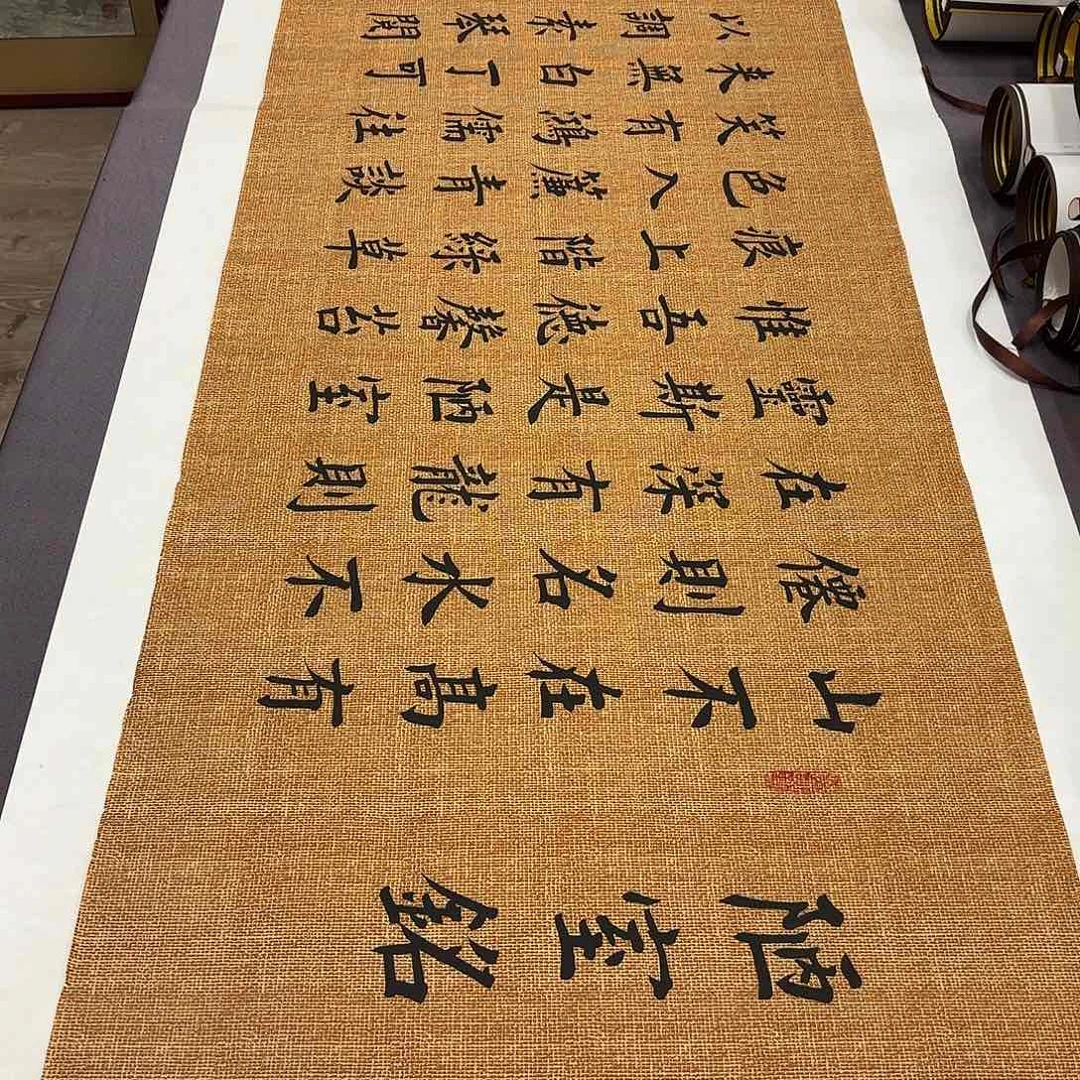 陋室銘
山不在髙有
僊則名水不
在深有龍則
靈斯是陋室
惟吾德馨苔
痕上階緑草
色入簾青談
笑有鴻儒往
来無白丁可
以調素琴閱